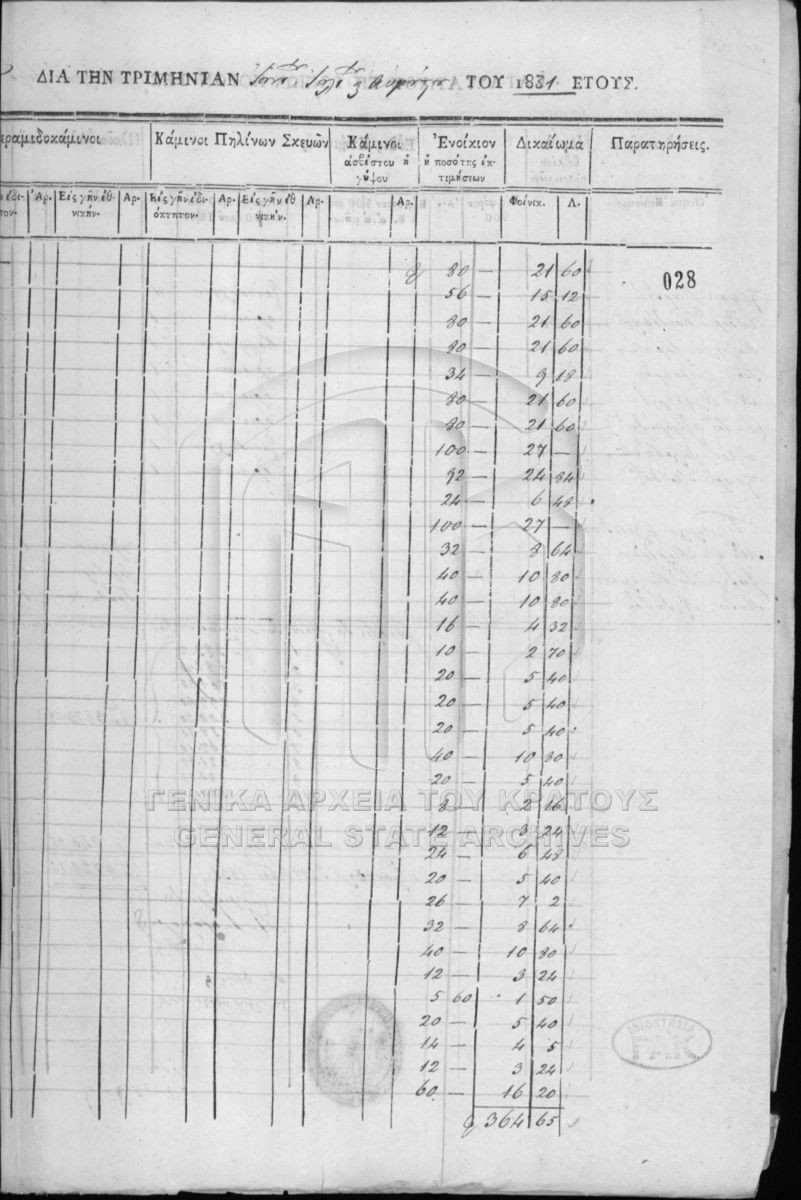 ΔΙΑ ΤΗΝ ΤΡΙΜΗΝΙΑΝ ΤΟΥ 1831. ΕΤΟΥΣ.
εραμιδοκάμινοι | Κάμινοι Πηλίνων Σκευῶν | Κάμινοι ἀσβέστου ἢ γύψου | Ἐνοίκιον ἢ ποσότης ἐκτιμήσεων | Δικαίωμα | Παρατηρήσεις.
Ἀρ. | Εἰς γῆν ἐθνικήν. | Ἀρ. | Εἰς γῆν ἰδιόκτητον. | Ἀρ. | Εἰς γῆν ἐθνικήν. | Ἀρ. | Ἀρ. | Φοίνικ. | Λ.
80 — 21 60
028
56 — 15 12
80 — 21 60
80 — 21 60
34 — 9 18
80 — 21 60
80 — 21 60
100 — 27 —
92 — 24 84
24 — 6 48
100 — 27 —
32 — 8 64
40 — 10 80
40 — 10 80
16 — 4 32
10 — 2 70
20 — 5 40
20 — 5 40
20 — 5 40
40 — 10 80
20 — 5 40
8 — 2 16
ΓΕΝΙΚΑ ΑΡΧΕΙΑ ΤΟΥ ΚΡΑΤΟΥΣ
12 — 3 24
GENERAL STATE ARCHIVES
24 — 6 48
20 — 5 40
26 — 7 2
32 — 8 64
40 — 10 80
12 — 3 24
5 60 1 50
20 — 5 40
ΓΑΚ
14 — 4 5
12 — 3 24
60 — 16 20
364 65